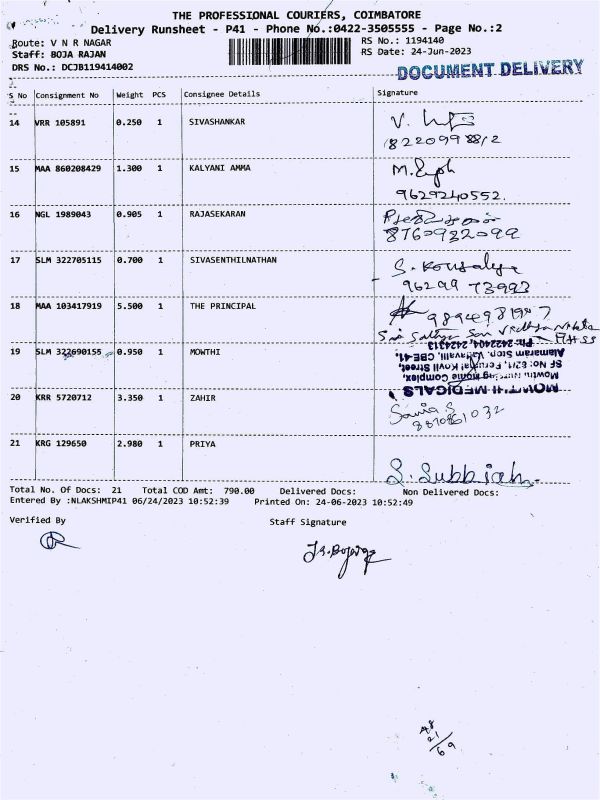 THE PROFESSIONAL COURIERS, COIMBATORE
Delivery Runsheet - P41 - Phone No.:0422-3505555 - Page No.:2
Route: V N R NAGAR RS No.: 1194140
Staff: BOJA RAJAN RS Date: 24-Jun-2023
DRS No.: DCJB119414002
DOCUMENT DELIVERY
S No Consignment No Weight PCS Consignee Details Signature
14 VRR 105891 0.250 1 SIVASHANKAR V.
8220998812
15 MAA 860208429 1.300 1 KALYANI AMMA M.
9629240552.
16 NGL 1989043 0.905 1 RAJASEKARAN
8760932099
17 SLM 322705115 0.700 1 SIVASENTHILNATHAN S. Kousalya
96299 73993
18 MAA 103417919 5.500 1 THE PRINCIPAL
19 SLM 322690155 0.950 1 MOWTHI
MOWTHI MEDICALS
Mowthi Nursing Home Complex,
SF No: 62/1, Perumal Kovil Street,
Alamaram Stop, Vadavalli, CBE-41.
Ph: 2422404, 2424313
20 KRR 5720712 3.350 1 ZAHIR Sania S
8870861032
21 KRG 129650 2.980 1 PRIYA S. Subbiah.
Total No. Of Docs: 21 Total COD Amt: 790.00 Delivered Docs: Non Delivered Docs:
Entered By :NLAKSHMIP41 06/24/2023 10:52:39 Printed On: 24-06-2023 10:52:49
Verified By Staff Signature
48
21/69